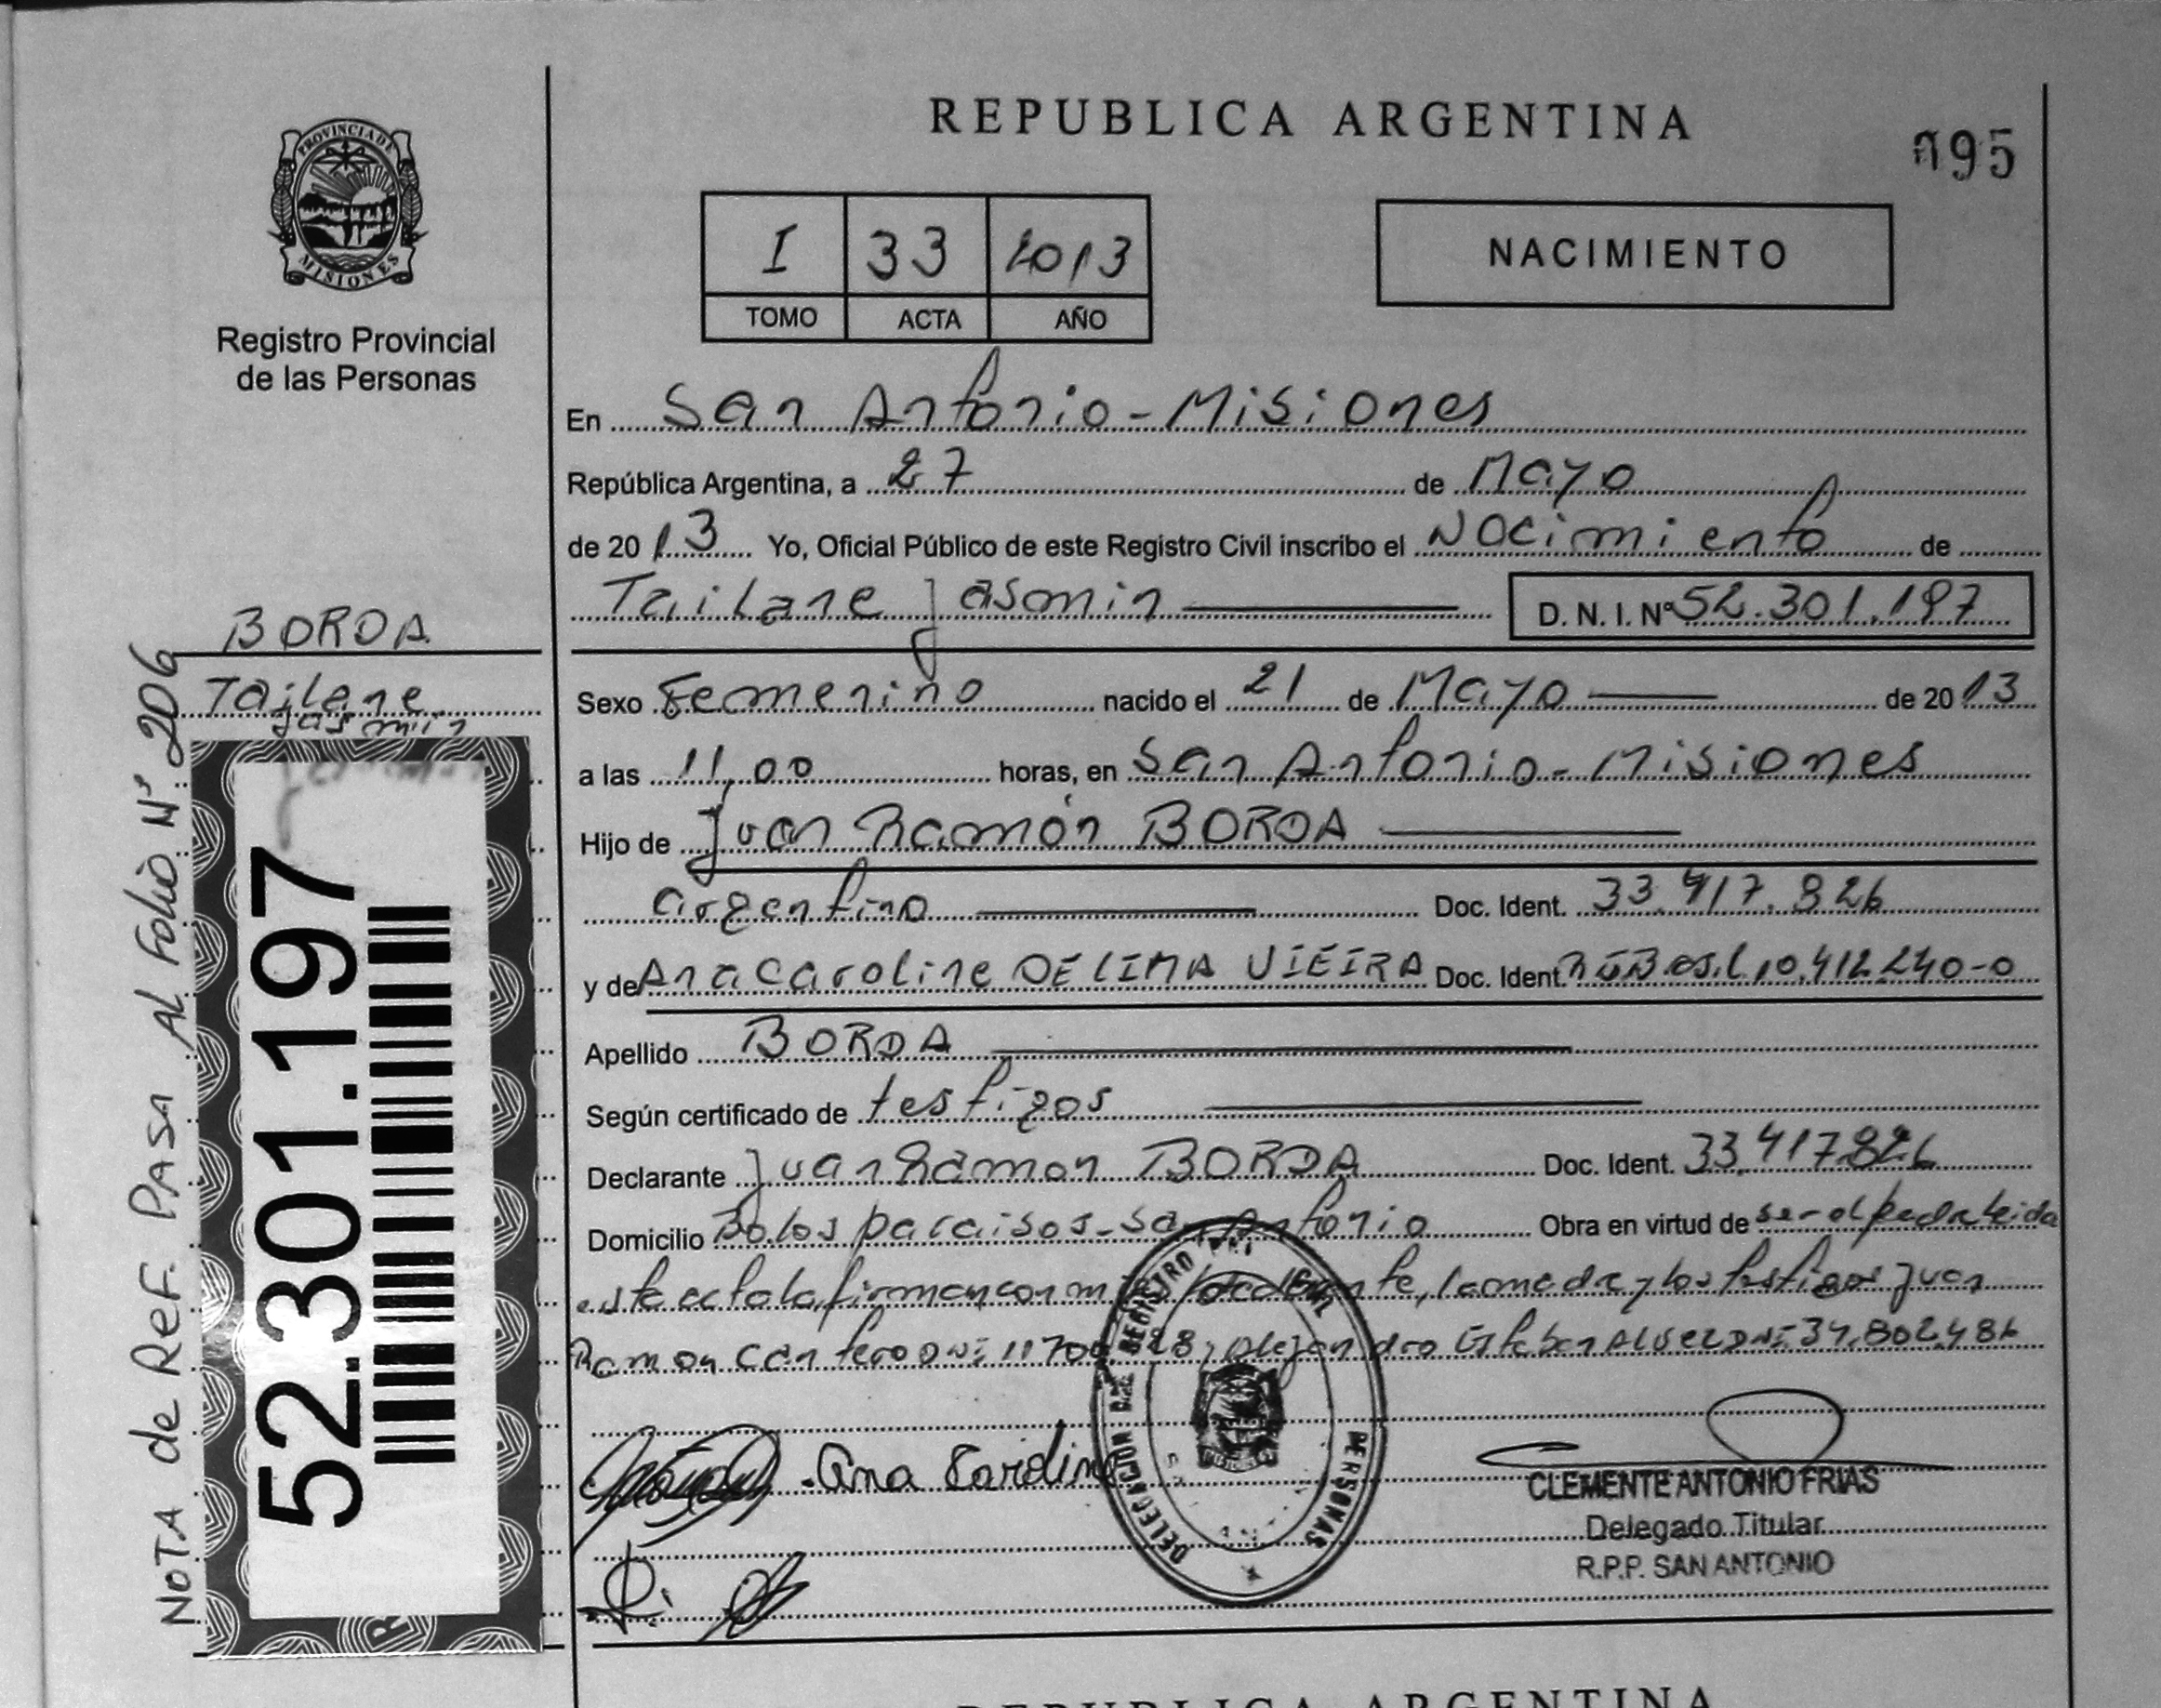 REPUBLICA ARGENTINA
095
PROVINCIA DE
MISIONES
Registro Provincial
de las Personas
I 33 2013
TOMO ACTA AÑO
NACIMIENTO
En San Antonio - Misiones
República Argentina, a 27 de Mayo
de 2013 Yo, Oficial Público de este Registro Civil inscribo el Nacimiento de
Tailane Jasmin D. N. I. Nº 52.301.197
BORDA
Tailane
Jasmin
NOTA de Ref. PASA AL Folio Nº 206
52.301.197
Sexo Femenino nacido el 21 de Mayo de 2013
a las 11,00 horas, en San Antonio - Misiones
Hijo de Juan Ramón BORDA
argentino Doc. Ident. 33.417.826
y de Ana Caroline DE LIMA VIEIRA Doc. Ident. 10.412.240-0
Apellido BORDA
Según certificado de testigos
Declarante Juan Ramon BORDA Doc. Ident. 33.417.826
Domicilio Bo. los paraisos - San Antonio Obra en virtud de ser el padre leida
este acta la firman conmigo el declarante, la madre y los testigos Juan
Ramon Cantero DNI 11.70 28, Alejandro Esteban ALVEZ DNI 34.802.486
Ana Caroline
DELEGACION DEL REGISTRO PERSONAS
CLEMENTE ANTONIO FRIAS
Delegado Titular
R.P.P. SAN ANTONIO
REPUBLICA ARGENTINA